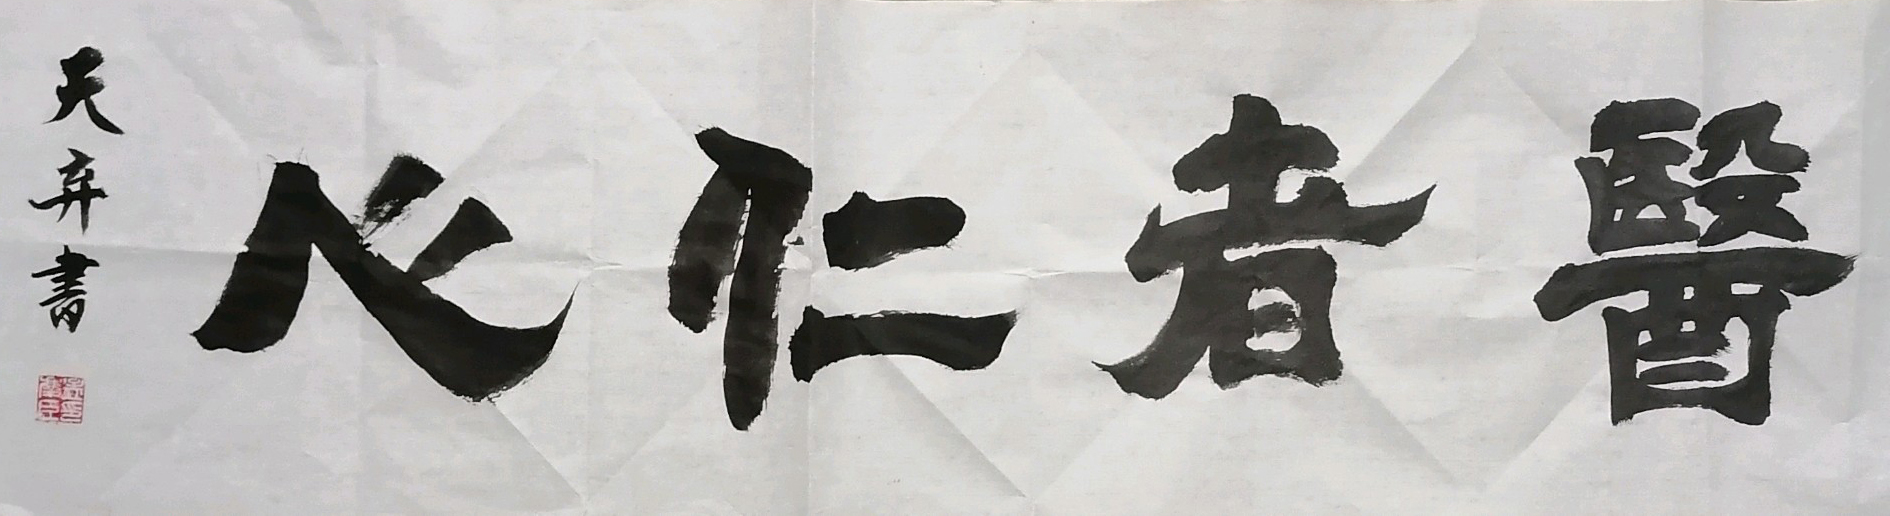 醫者仁心
天弃書